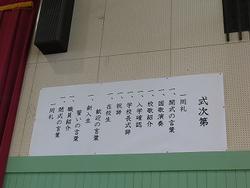 式次第
一同礼
一、開式の言葉
一、国歌演奏
一、校歌紹介
一、入学確認
一、学校長式辞
一、祝辞
一、在校生
歓迎の言葉
一、新入生
誓いの言葉
一、職員紹介
一、閉式の言葉
一同礼